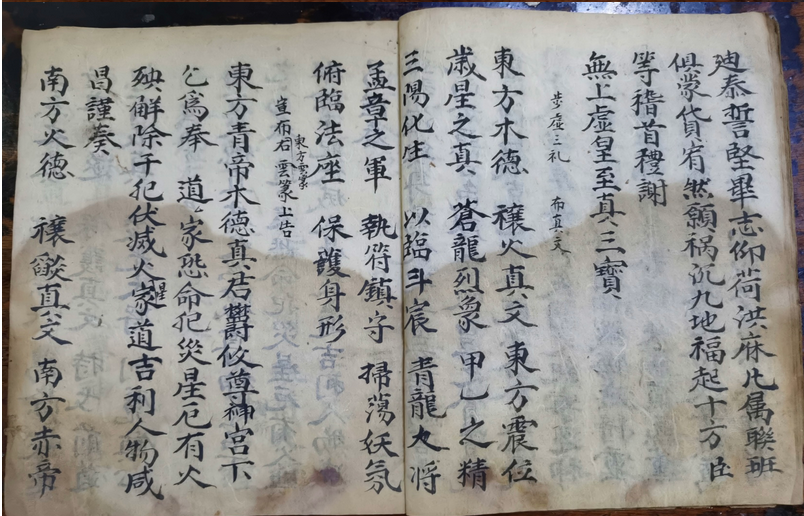 迪奉誓堅畢志仰荷洪庥凡属聯班
俱蒙貸宥然願祸沉九地福起十方臣
等稽首禮謝
無上虛皇至真三寶
步虛三礼　布真文
東方木德　禳火真文東方震位
歲星之真　蒼龍烈象甲乙之精
三陽化生　以臨斗宸　青龍九将
孟章之軍　執符鎮字　掃蕩妖氛
俯臨法座　保護身形
東方雲篆
宣布右雲篆上告
東方青帝木德真君欎攸尊神宫下
乞爲奉　道家恐命犯災星厄有火
殃解除干犯伏滅火星家道吉利人物咸
昌謹奏
南方火德　禳燄真文　南方赤帝